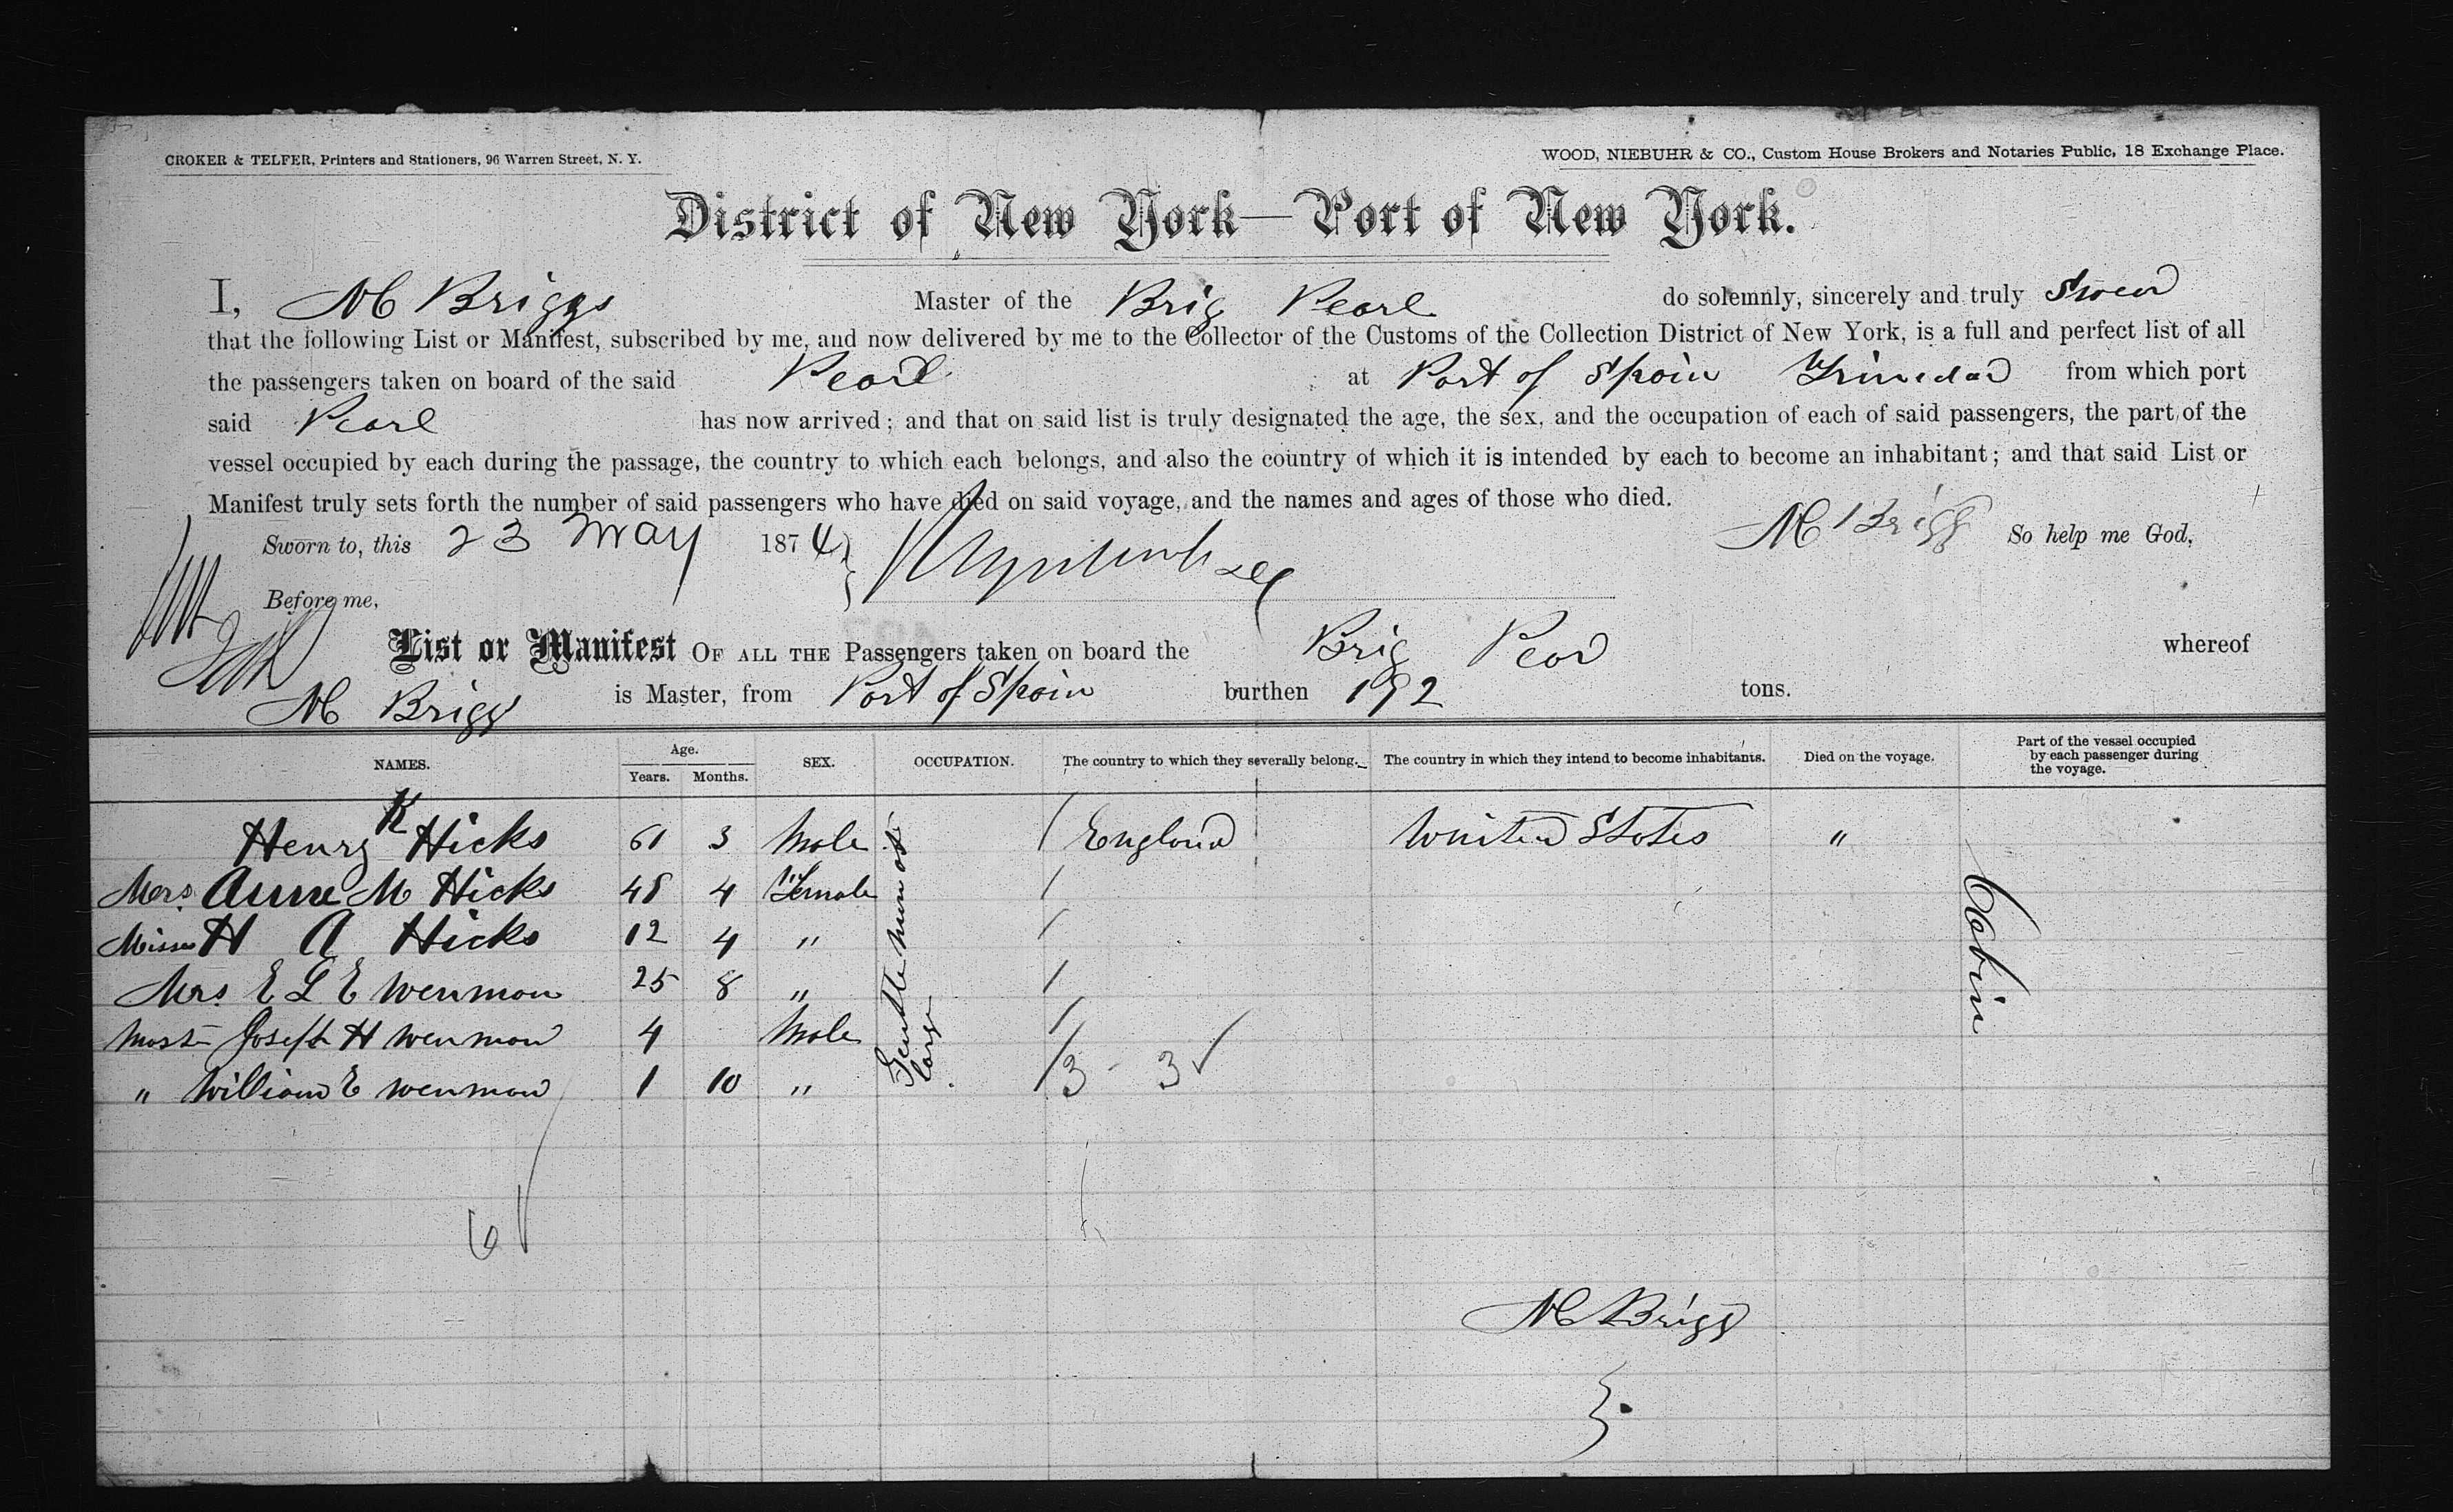 CROKER & TELFER, Printers and Stationers, 96 Warren Street, N. Y.
WOOD, NIEBUHR & CO., Custom House Brokers and Notaries Public, 18 Exchange Place.
District of New York—Port of New York.
I, M Briggs Master of the Brig Pearl do solemnly, sincerely and truly Swear
that the following List or Manifest, subscribed by me, and now delivered by me to the Collector of the Customs of the Collection District of New York, is a full and perfect list of all
the passengers taken on board of the said Pearl at Port of Spain Trinidad from which port
said Pearl has now arrived; and that on said list is truly designated the age, the sex, and the occupation of each of said passengers, the part of the
vessel occupied by each during the passage, the country to which each belongs, and also the country of which it is intended by each to become an inhabitant; and that said List or
Manifest truly sets forth the number of said passengers who have died on said voyage, and the names and ages of those who died.
Sworn to, this 23 May 1874 M Briggs So help me God,
Before me,
List or Manifest OF ALL THE Passengers taken on board the Brig Pearl whereof
M Briggs is Master, from Port of Spain burthen 192 tons.
NAMES. Age. Years. Months. SEX. OCCUPATION. The country to which they severally belong. The country in which they intend to become inhabitants. Died on the voyage. Part of the vessel occupied by each passenger during the voyage.
Henry K Hicks 61 3 Male England United States "
Mrs. Anne M Hicks 48 4 Female
Miss H A Hicks 12 4 "
Mrs E L E Wenman 25 8 "
Mast Joseph H Wenman 4 Male
" William E Wenman 1 10 " 3 - 3 ✓
Gentlemen at large
Cabin
6
M Briggs